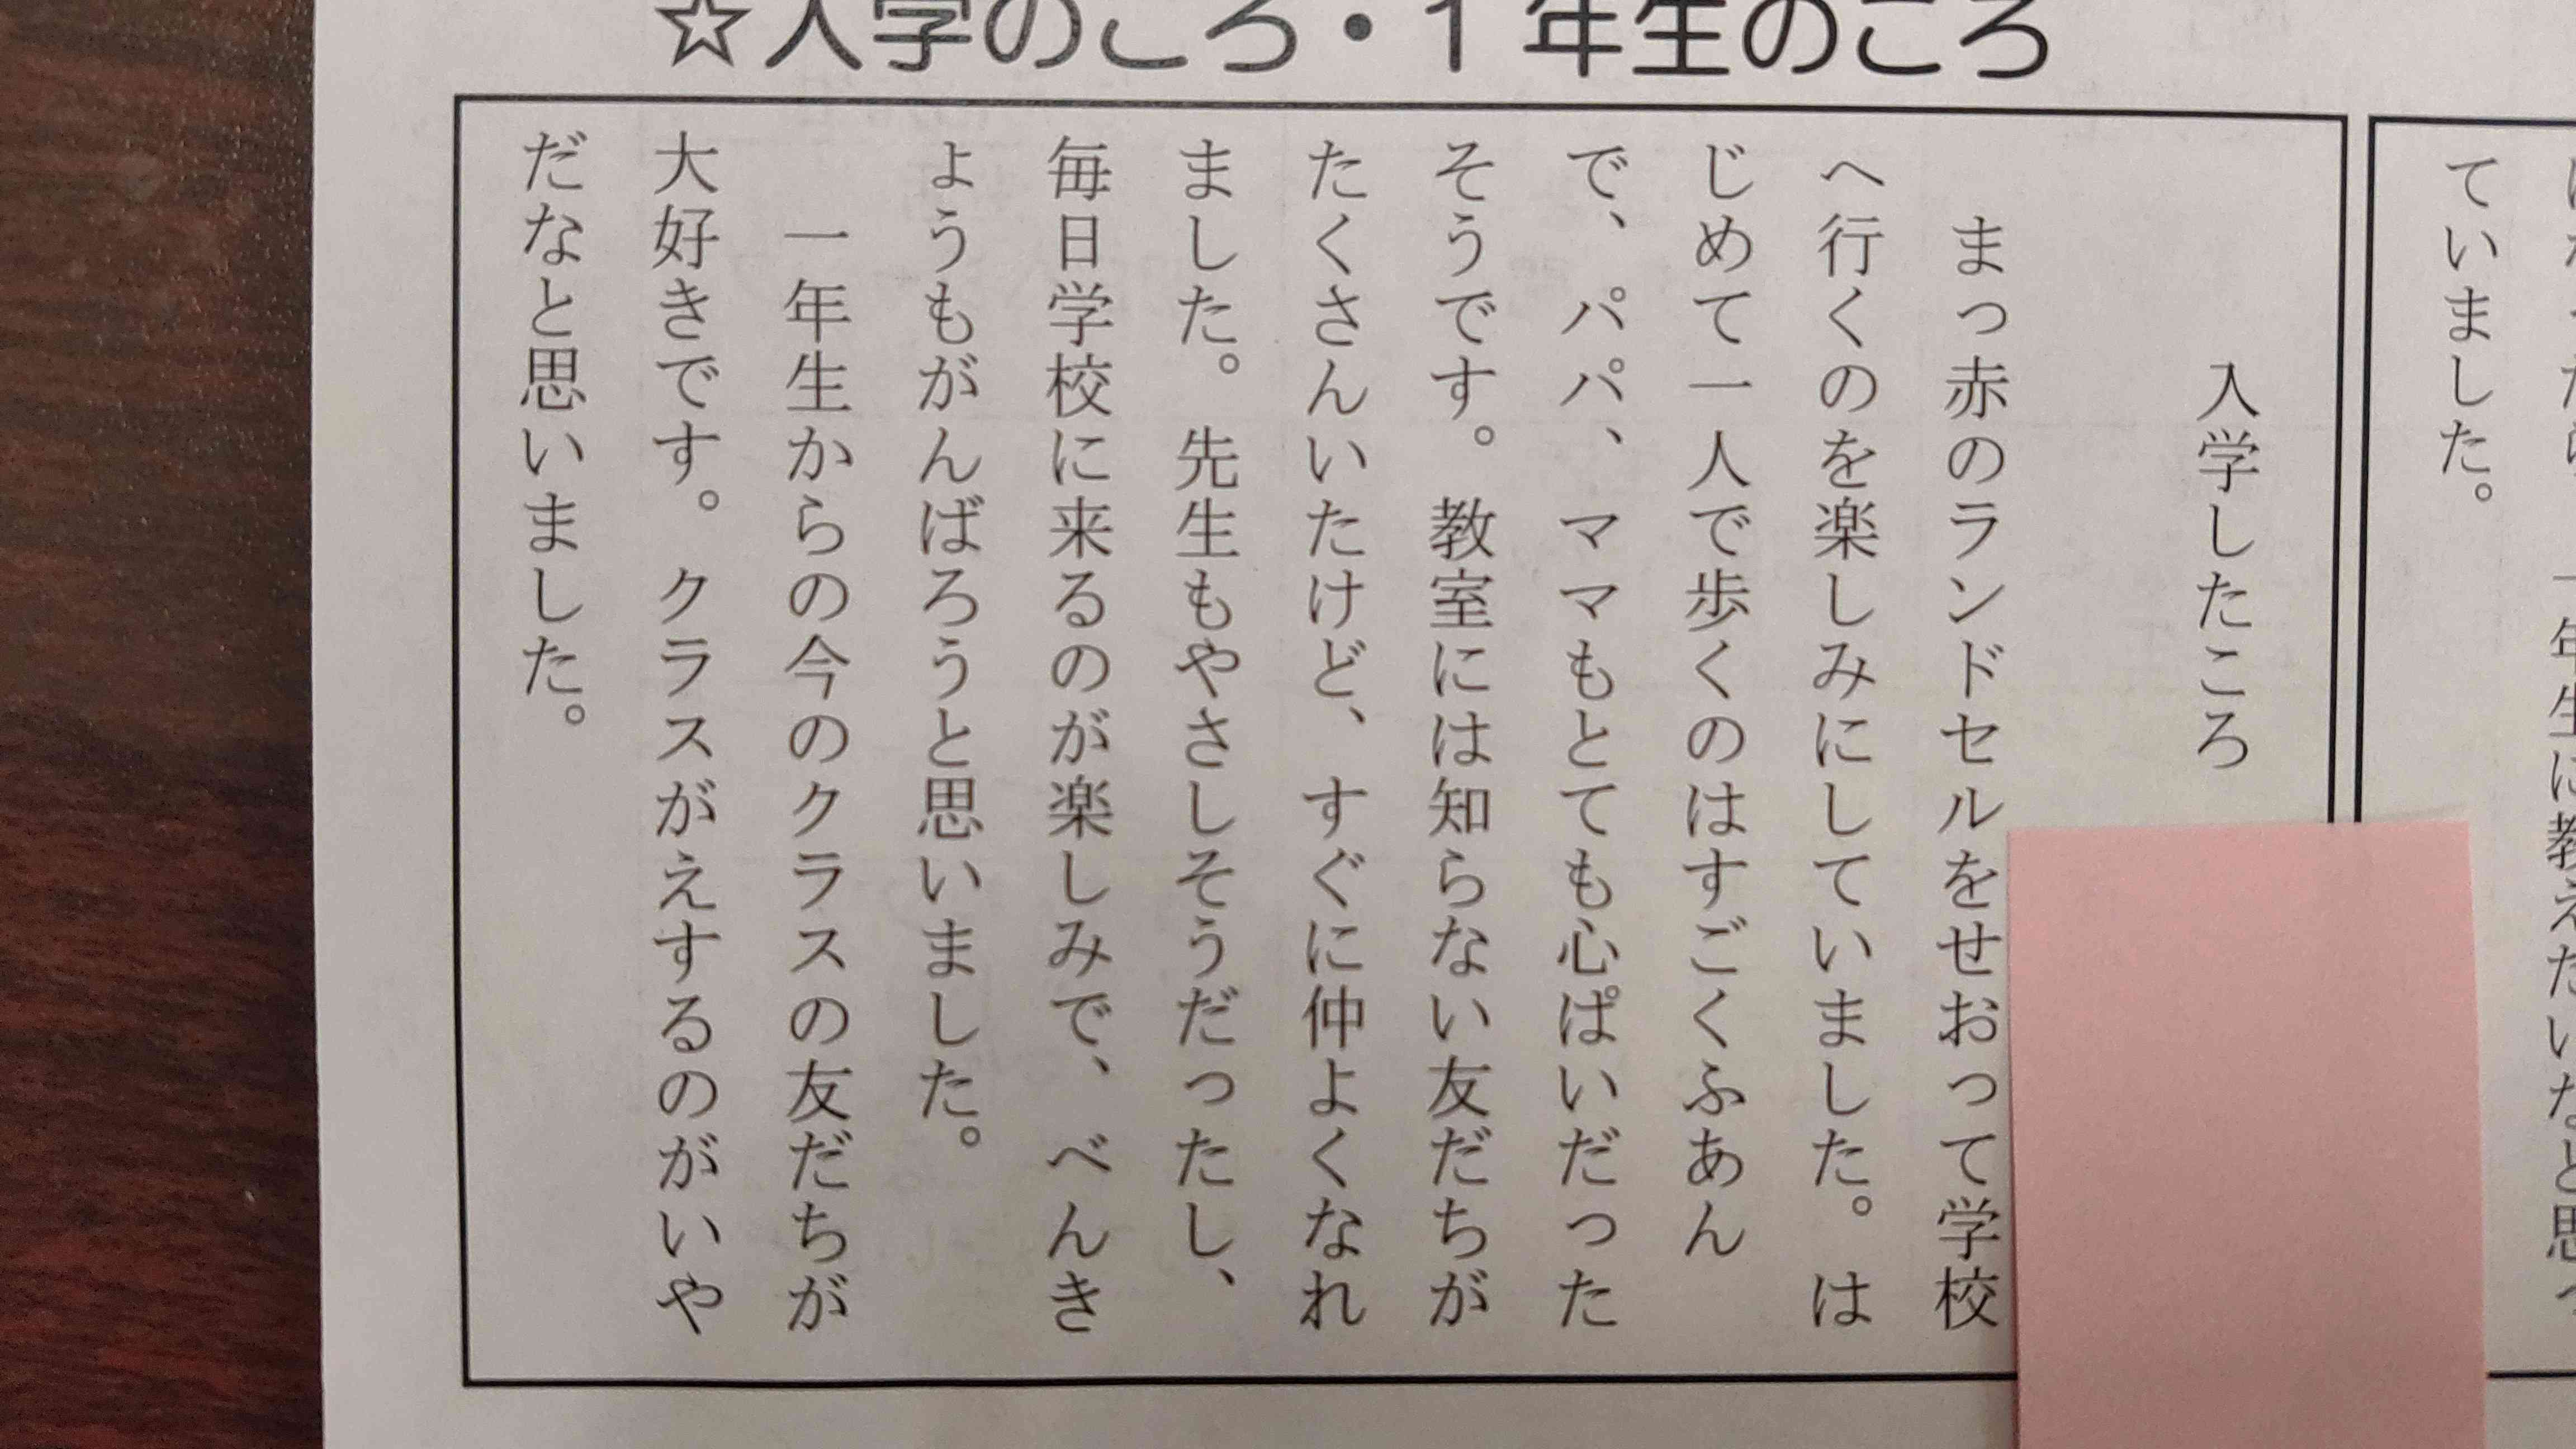 ☆入学のころ・1年生のころ
ていました。
入学したころ
まっ赤のランドセルをせおって学校
へ行くのを楽しみにしていました。は
じめて一人で歩くのはすごくふあん
で、パパ、ママもとても心ぱいだった
そうです。教室には知らない友だちが
たくさんいたけど、すぐに仲よくなれ
ました。先生もやさしそうだったし、
毎日学校に来るのが楽しみで、べんき
ょうもがんばろうと思いました。
一年生からの今のクラスの友だちが
大好きです。クラスがえするのがいや
だなと思いました。